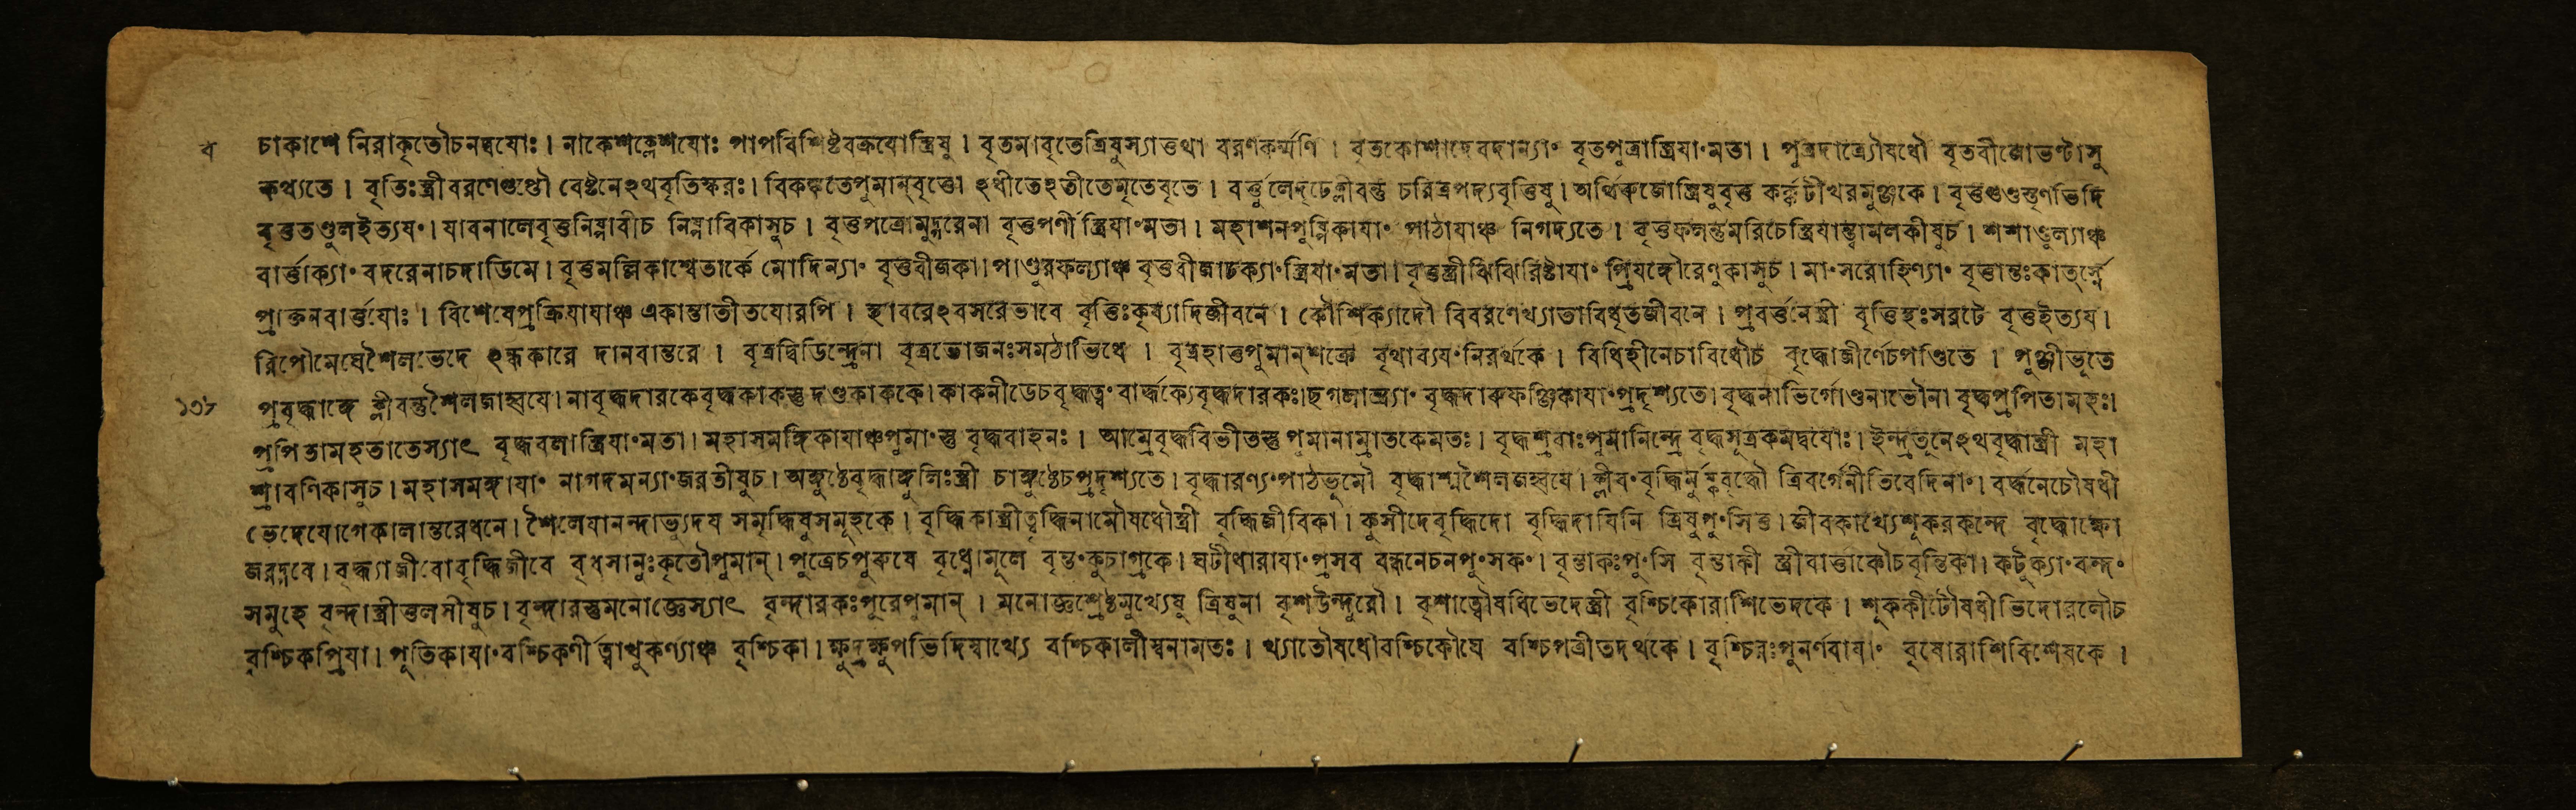 ব চাকাশে নিরাকৃতৌচনদ্বযোঃ। নাকেশক্লেশযোঃ পাপবিশিষ্টবক্রযোস্ত্রিষু । বৃতমাবৃতেত্রিষুস্যাত্তথা বরণকর্ম্মণি । বৃতকোশাদেবদান্যাং বৃতপুত্রাস্ত্রিযাংমতা। পুত্রদাত্র্যৌষধৌ বৃতবীজোভণ্টাসু
কথ্যতে । বৃতিঃস্ত্রীবরণেগুণ্ডৌ বেষ্টনেঽথবৃতিঙ্করঃ। বিকঙ্কতেপুমান্‌বৃত্তো ঽধীতেঽতীতেমৃতেবৃতে । বর্ত্তুলেদৃঢেক্লীবন্তু চরিত্রপদ্যবৃত্তিষু। অর্থিৰুজোস্ত্রিষুবৃত্ত কর্ক্কটীখরমুঞ্জকে। বৃত্তগুণ্ডস্তৃণভিদি
বৃত্ততণ্ডুলইত্যযং। যাবনালেবৃত্তনিষ্পাবীচ নিষ্পাবিকাসুচ । বৃত্তপত্রোমুদ্গরেনা বৃত্তপর্ণী স্ত্রিযাংমতা। মহাশনপুষ্পিকাযাং পাঠাযাঞ্চ নিগদ্যতে । বৃত্তফলন্তুমরিচেস্ত্রিযান্ত্বামলকীষুচ। শশাণ্ডুল্যাঞ্চ
বার্ত্তাক্যাং বদরেনাচদাডিমে। বৃত্তমল্লিকাশ্বেতার্কে মোদিন্যাং বৃত্তবীজকা। পাণ্ডুরফল্যাঞ্চ বৃত্তবীজাঢক্যাংস্ত্রিযাংমতা। বৃত্তস্ত্রীঝিঝিরিষ্টাযাং প্রিযঙ্গৌরেণুকাসুচ। মাংসরোহিণ্যাং বৃত্তান্তঃকাৎর্স্ন্যে
প্রাক্তনবার্ত্তযোঃ। বিশেষেপ্রক্রিযাযাঞ্চ একান্তাতীতযোরপি । স্থাবরেঽবসরেভাবে বৃত্তিঃকৃষ্যাদিজীবনে । কৌশিক্যাদৌ বিবরণেখ্যাতাবিধৃতজীবনে । প্রবর্ত্তনেস্ত্রী বৃত্তিহঃসরটে বৃত্তইত্যয।
রিপৌমেঘেশৈলভেদে ঽন্ধকারে দানবান্তরে । বৃত্রদ্বিডিন্দ্রেনা বৃত্রভোজনঃসমঠাভিধে । বৃত্রহাত্তপুমান্‌শক্রে বৃথাব্যযংনিরর্থকে । বিধিহীনেচাবিধৌচ বৃদ্ধোজীর্ণেচপণ্ডিতে । পুঞ্জীভূতে
১৩৮ প্রবৃদ্ধাঙ্গে ক্লীবন্তুশৈলজাহ্বযে। নাবৃদ্ধদারকেবৃদ্ধকাকস্তু দণ্ডকাককে। কাকনীডেচবৃদ্ধত্বং বার্দ্ধক্যেবৃদ্ধদারকঃ। ছগলান্ত্র্যাং বৃদ্ধদাৰুফঞ্জিকাযাংপ্রদৃশ্যতে। বৃদ্ধনাভির্গোণ্ডনাভৌনা বৃদ্ধপ্রপিতামহঃ।
প্রপিতামহতাতেস্যাৎ বৃদ্ধবলাস্ত্রিযাংমতা। মহাসমঙ্গিকাযাঞ্চপুমাংস্তু বৃদ্ধবাহনঃ । আম্রেবৃদ্ধবিভীতস্তু পুমানাম্রাতকেমতঃ। বৃদ্ধশ্রবাঃপুমানিন্দ্রে বৃদ্ধসূত্রকমদ্বযোঃ। ইন্দ্রতূলেঽথবৃদ্ধাস্ত্রী মহা
শ্রাবণিকাসুচ। মহাসমঙ্গাযাং নাগদমন্যাংজরতীষুচ। অঙ্গুষ্ঠেবৃদ্ধাঙ্গুলিঃস্ত্রী চাঙ্গুষ্ঠেচপ্রদৃশ্যতে। বৃদ্ধারণ্যংপাঠভূমৌ বৃদ্ধাশ্মশৈলজাহ্বযে। ক্লীবং বৃদ্ধির্মুষ্কবৃদ্ধৌ ত্রিবর্গেনীতিবেদিনাং। বর্দ্ধনেচৌষধী
ভেদেযোগেকালান্তরেধনে। শৈলেযানন্দাভ্যুদয সমৃদ্ধিষুসমূহকে। বৃদ্ধিকাস্ত্রীতুঋদ্ধিনামৌষধৌস্ত্রী বৃদ্ধিজীবিকা। কুসীদেবৃদ্ধিদো বৃদ্ধিদাযিনি ত্রিষুপুংসিতু। জীবকাখ্যেশূকরকন্দে বৃদ্ধোক্ষো
জরদ্গবে। বৃদ্ধ্যাজীবোবৃদ্ধিজীবে বৃধসানুঃকৃতৌপুমান্‌। পুত্রেচপুৰুষে বৃধ্নোমূলে বৃন্তংকুচাগ্রকে। ঘটীধারাযাংপ্রসব বন্ধনেচনপুংসকং। বৃন্তাকঃপুংসি বৃন্তাকী স্ত্রীবার্ত্তাকৌচবৃন্তিকা। কটুক্যাংবন্দং
সমূহে বৃন্দাস্ত্রীতুলসীষুচ। বৃন্দারস্তুমনোজ্ঞেস্যাৎ বৃন্দারকঃসুরেপুমান্‌ । মনোজ্ঞশ্রেষ্ঠমুখ্যেষু ত্রিষুনা বৃশউন্দুরৌ। বৃশাত্বৌষধিভেদেস্ত্রী বৃশ্চিকোরাশিভেদকে। শূককীটৌষধীভিদোরলৌচ
বৃশ্চিকপ্রিযা। পূতিকাযাংবৃশ্চিকর্ণী র্ত্বাখুকর্ণ্যাঞ্চ বৃশ্চিকা। ক্ষুদ্রক্ষুপভিদিস্বাখ্যে বশ্চিকালীস্বনামতঃ। খ্যাতৌষধৌবশ্চিকৌঘে বশ্চিপত্রীতদর্থকে। বৃশ্চিরঃপুনর্ণবাযাং বৃষোরাশিবিশেষকে ।